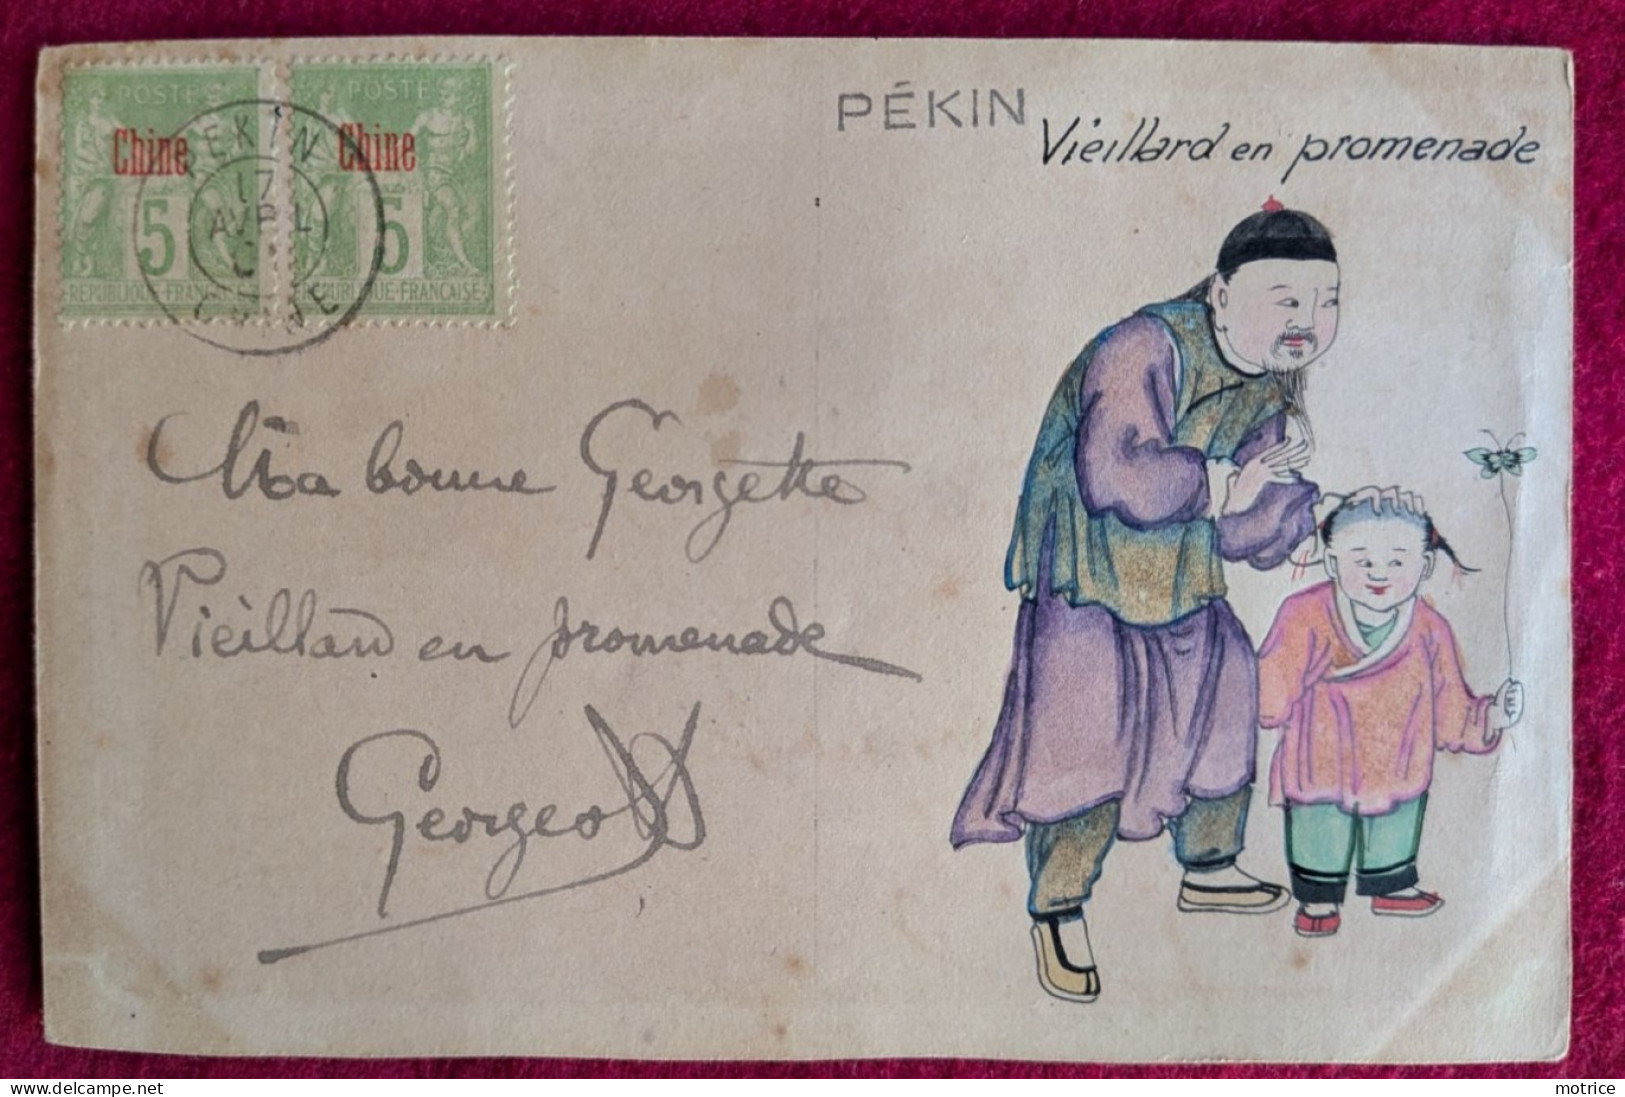 POSTE
POSTE
Chine
Chine
PEKIN
17
AVRIL
CHINE
5
5
REPUBLIQUE-FRANÇAISE
REPUBLIQUE-FRANÇAISE
PÉKIN
Vieillard en promenade
Ma bonne Georgette
Vieillard en promenade
Georges
motrice